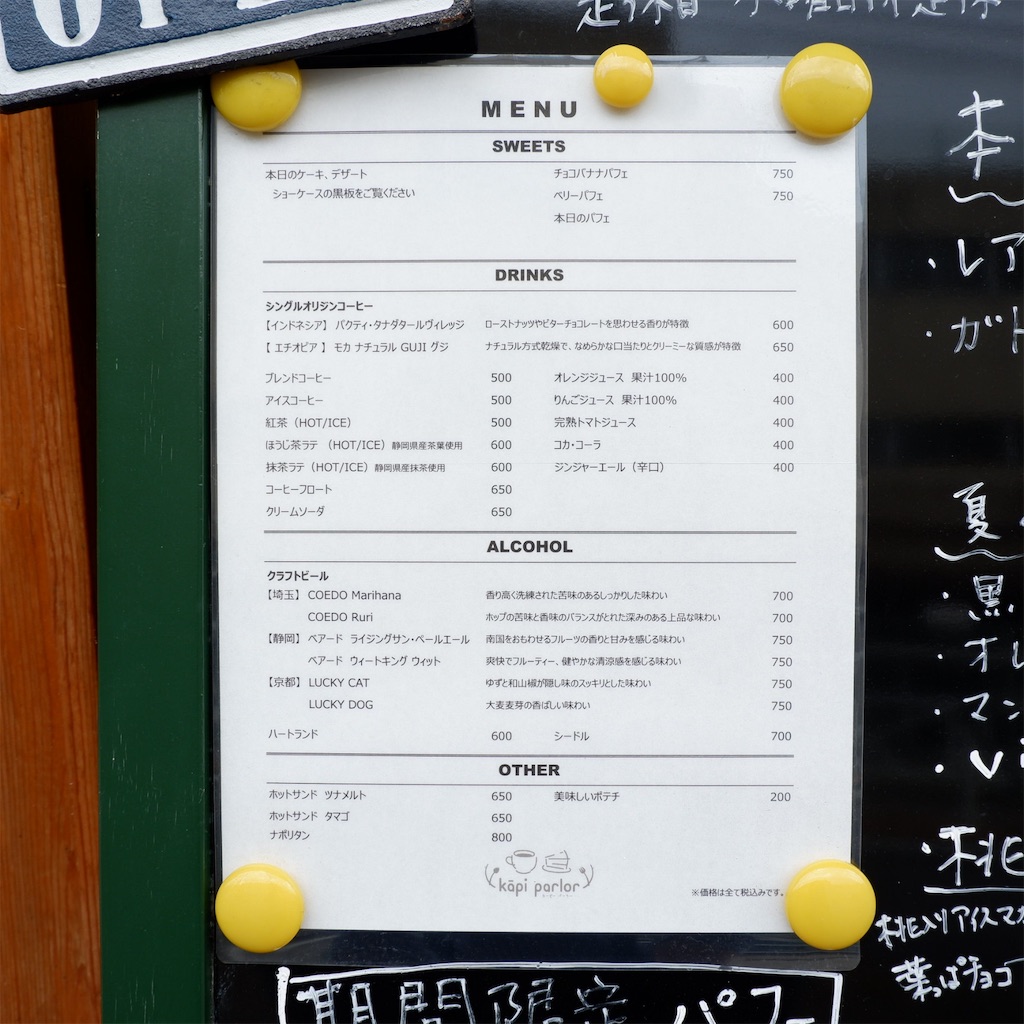 MENU
SWEETS
本日のケーキ、デザート
ショーケースの黒板をご覧ください
チョコバナナパフェ 750
ベリーパフェ 750
本日のパフェ
DRINKS
シングルオリジンコーヒー
【インドネシア】 バクティ・タナダタールヴィレッジ ローストナッツやビターチョコレートを思わせる香りが特徴 600
【 エチオピア 】 モカ ナチュラル GUJI グジ ナチュラル方式乾燥で、なめらかな口当たりとクリーミーな質感が特徴 650
ブレンドコーヒー 500 オレンジジュース 果汁100% 400
アイスコーヒー 500 りんごジュース 果汁100% 400
紅茶（HOT/ICE） 500 完熟トマトジュース 400
ほうじ茶ラテ （HOT/ICE）静岡県産茶葉使用 600 コカ・コーラ 400
抹茶ラテ（HOT/ICE）静岡県産抹茶使用 600 ジンジャーエール（辛口） 400
コーヒーフロート 650
クリームソーダ 650
ALCOHOL
クラフトビール
【埼玉】 COEDO Marihana 香り高く洗練された苦味のあるしっかりした味わい 700
COEDO Ruri ホップの苦味と香味のバランスがとれた深みのある上品な味わい 700
【静岡】 ベアード ライジングサン・ペールエール 南国をおもわせるフルーツの香りと甘みを感じる味わい 750
ベアード ウィートキング ウィット 爽快でフルーティー、健やかな清涼感を感じる味わい 750
【京都】 LUCKY CAT ゆずと和山椒が隠し味のスッキリとした味わい 750
LUCKY DOG 大麦麦芽の香ばしい味わい 750
ハートランド 600 シードル 700
OTHER
ホットサンド ツナメルト 650 美味しいポテチ 200
ホットサンド タマゴ 650
ナポリタン 800
kāpi parlor
※価格は全て税込みです。
本
・レア
・ガト
夏
・黒
・オレ
・マン
・Vi
・桃
桃入りアイスマカ
葉っぱチョコ
期間限定 パフェ